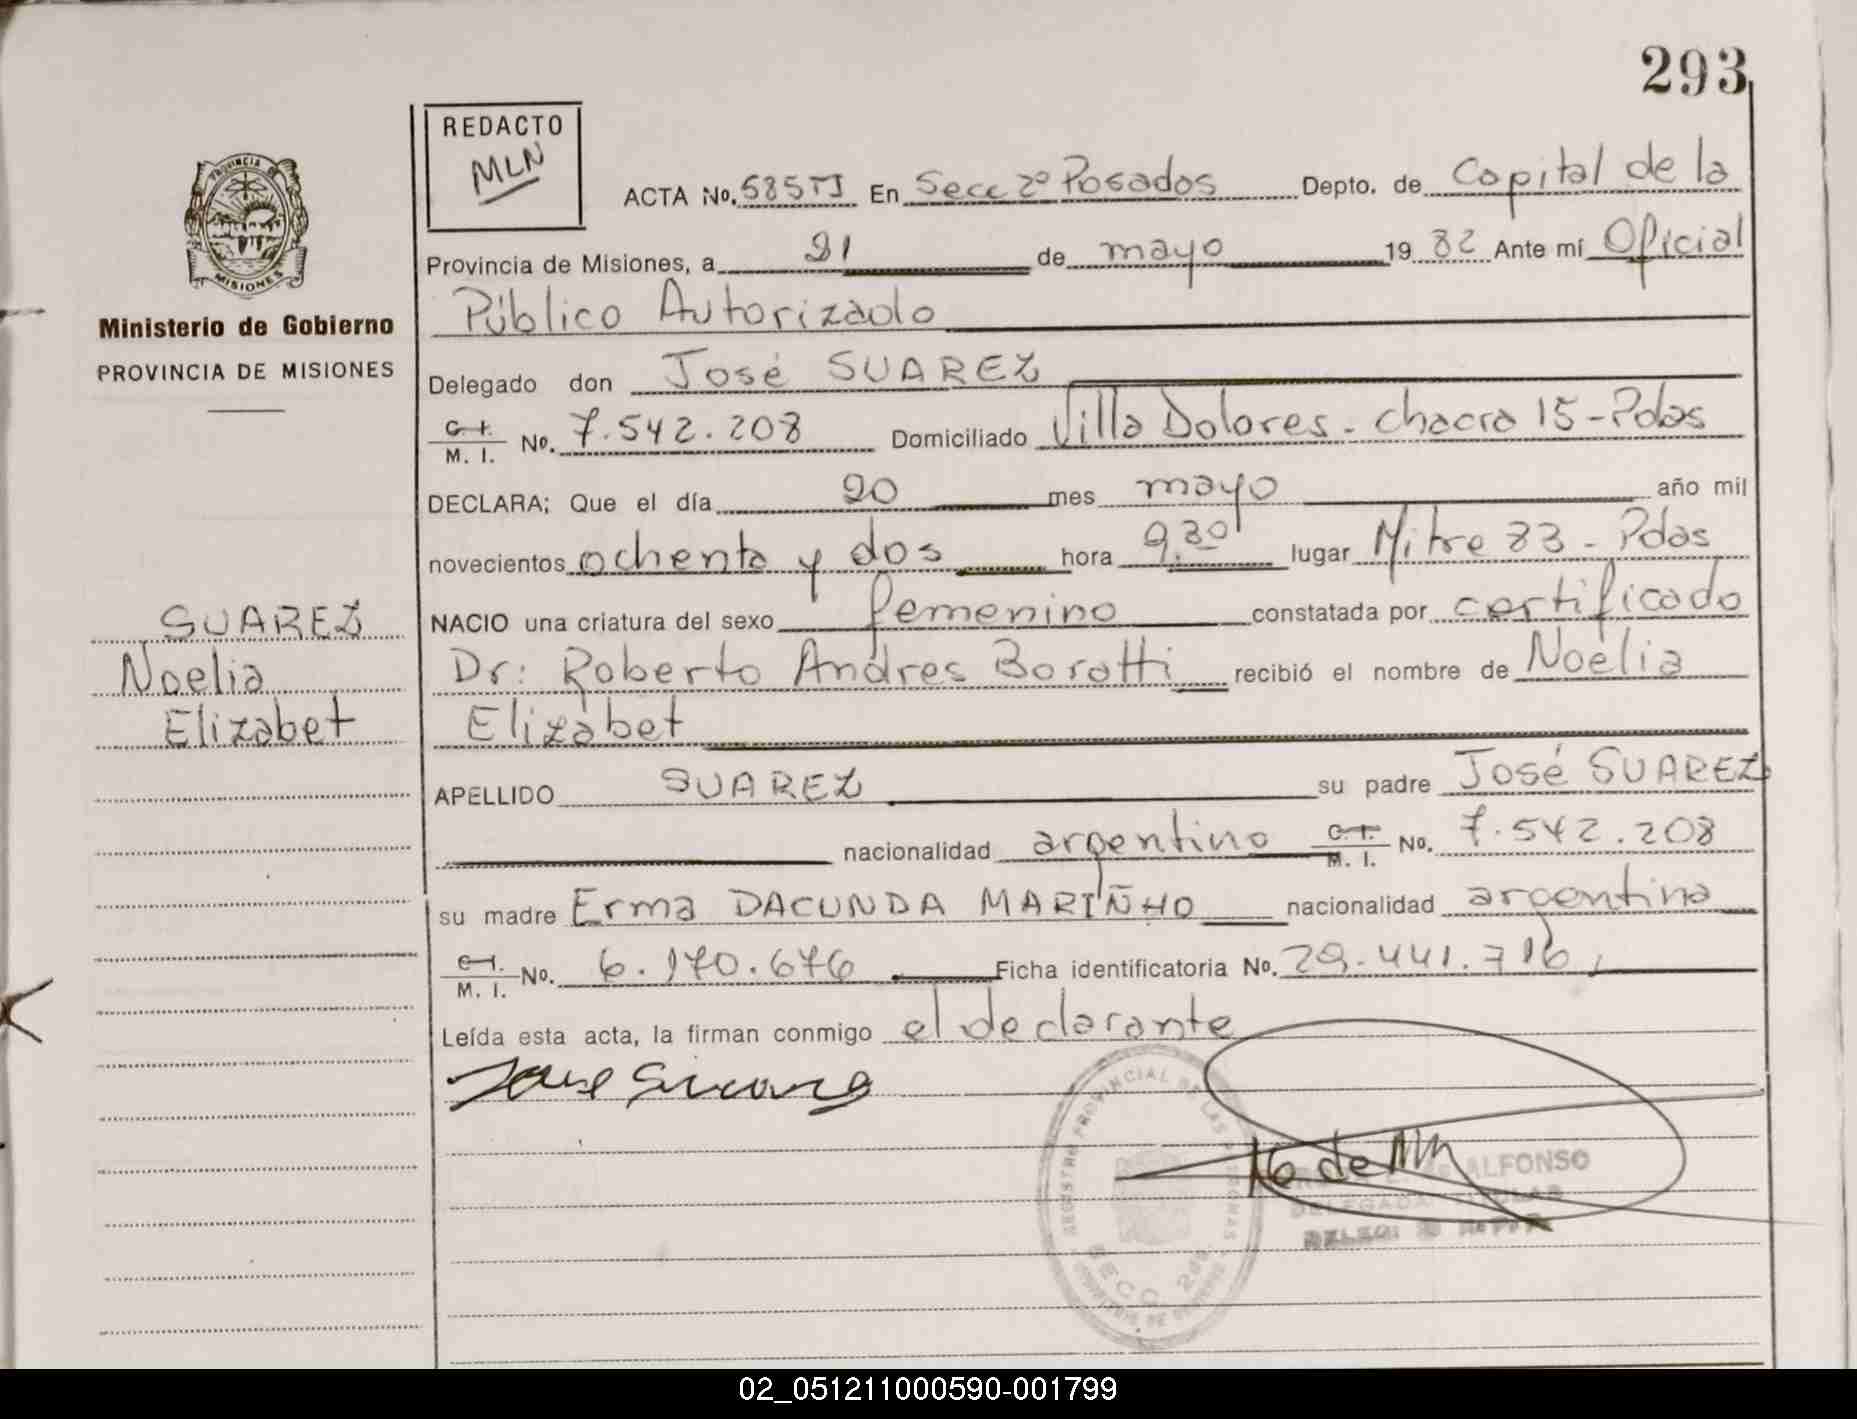 293
REDACTO
MLN
PROVINCIA DE
MISIONES
Ministerio de Gobierno
PROVINCIA DE MISIONES
SUAREZ
Noelia
Elizabet
ACTA No. 585 TI En Secc 2º Posadas Depto. de Capital de la
Provincia de Misiones, a 21 de mayo 19 82 Ante mí Oficial
Público Autorizado
Delegado don José SUAREZ
C. I. / M. I. No. 7.542.208 Domiciliado Villa Dolores - chacra 15 - Pdas
DECLARA; Que el día 20 mes mayo año mil
novecientos ochenta y dos hora 9,30 lugar Mitre 83 - Pdas
NACIO una criatura del sexo femenino constatada por certificado
Dr: Roberto Andres Boratti recibió el nombre de Noelia
Elizabet
APELLIDO SUAREZ su padre José SUAREZ
nacionalidad argentino C. I. / M. I. No. 7.542.208
su madre Erma DACUNDA MARIÑHO nacionalidad argentina
C. I. / M. I. No. 6.170.676 Ficha identificatoria No. 29.441.716,
Leída esta acta, la firman conmigo el declarante
Jose Suarez
REGISTRO PROVINCIAL DE LAS PERSONAS
SECC. 2da
ALFONSO
DELEGADA TITULAR
02_051211000590-001799